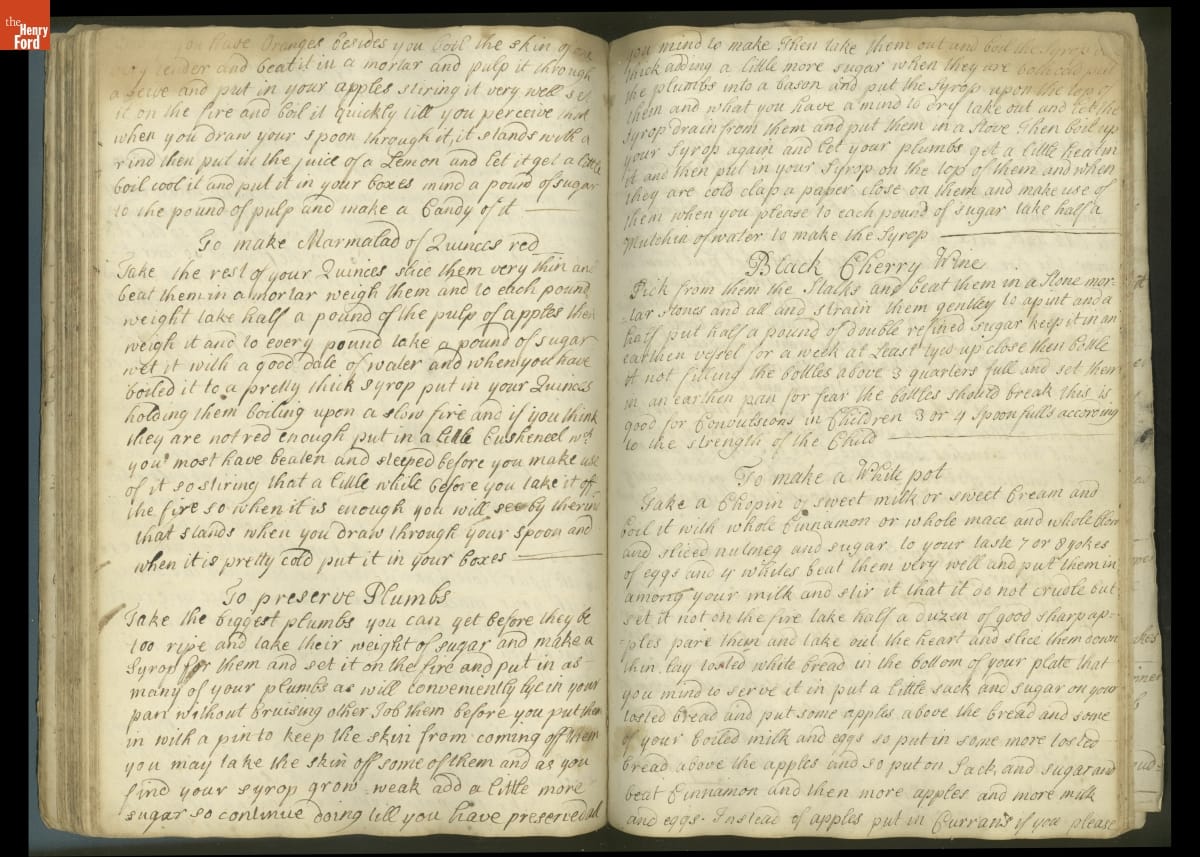 the Henry Ford
you have Oranges besides you boil the skin of one
very tender and beat it in a mortar and pulp it through
a seive and put in your apples stiring it very well set
it on the fire and boil it quickly till you perceive that
when you draw your spoon through it, it stands with a
rind then put in the juice of a Lemon and let it get a little
boil cool it and put it in your boxes mind a pound of sugar
to the pound of pulp and make a Candy of it
To make Marmalad of Quinces red
Take the rest of your Quinces slice them very thin and
beat them in a mortar weigh them and to each pound
weight take half a pound of the pulp of apples then
weigh it and to every pound take a pound of sugar
wet it with a good dale of water and when you have
boiled it to a pretty thick syrop put in your Quinces
holding them boiling upon a slow fire and if you think
they are not red enough put in a little Cusheneel wch
you most have beaten and steeped before you make use
of it so stiring that a little while before you take it off
the fire so when it is enough you will see by the rind
that stands when you draw through your spoon and
when it is pretty cold put it in your boxes
To preserve Plumbs
Take the biggest plumbs you can get before they be
too ripe and take their weight of sugar and make a
Syrop for them and set it on the fire and put in as
many of your plumbs as will conveniently lye in your
pan without bruising other Job them before you put them
in with a pin to keep the skin from coming off them
you may take the skin off some of them and as you
find your syrop grow weak add a little more
sugar so continue doing till you have preserved all
you mind to make Then take them out and boil the Syrop
thick adding a little more sugar when they are both cold put
the plumbs into a bason and put the Syrop upon the top of
them and what you have a mind to dry take out and let the
syrop drain from them and put them in a Stove Then boil up
your Syrop again and let your plumbs get a little heal in
it and then put in your Syrop on the top of them and when
they are cold clap a paper close on them and make use of
them when you please to each pound of sugar take half a
Mutchin of water to make the Syrop
Black Cherry Wine
Pick from them the Stalks and beat them in a Stone mor-
-tar Stones and all and strain them gentley to a pint and a
half put half a pound of double refined Sugar keep it in an
earthen vessel for a week at Least ty'd up close then bottle
it not filling the bottles above 3 quarters full and set them
in an earthen pan for fear the bottles should break this is
good for Convultions in Children 3 or 4 Spoonfulls accoring
to the strength of the Child
To make a White pot
Take a Chopin of sweet milk or sweet Cream and
boil it with whole Cinnamon or whole mace and whole
and sliced nutmeg and sugar to your taste 7 or 8 yokes
of eggs and 4 whites beat them very well and put them in
among your milk and stir it that it do not crudle but
set it not on the fire take half a duzen of good sharp ap-
-ples pare them and take out the heart and slice them down
thin, lay tosted white bread in the bottom of your plate that
you mind to serve it in put a little sack and sugar on your
tosted bread and put some apples above the bread and some
of your boiled milk and eggs so put in some more tosted
bread above the apples and so put on Sack, and sugar and
beat Cinnamon and then more apples and more milk
and eggs. Instead of apples put in Currans if you please